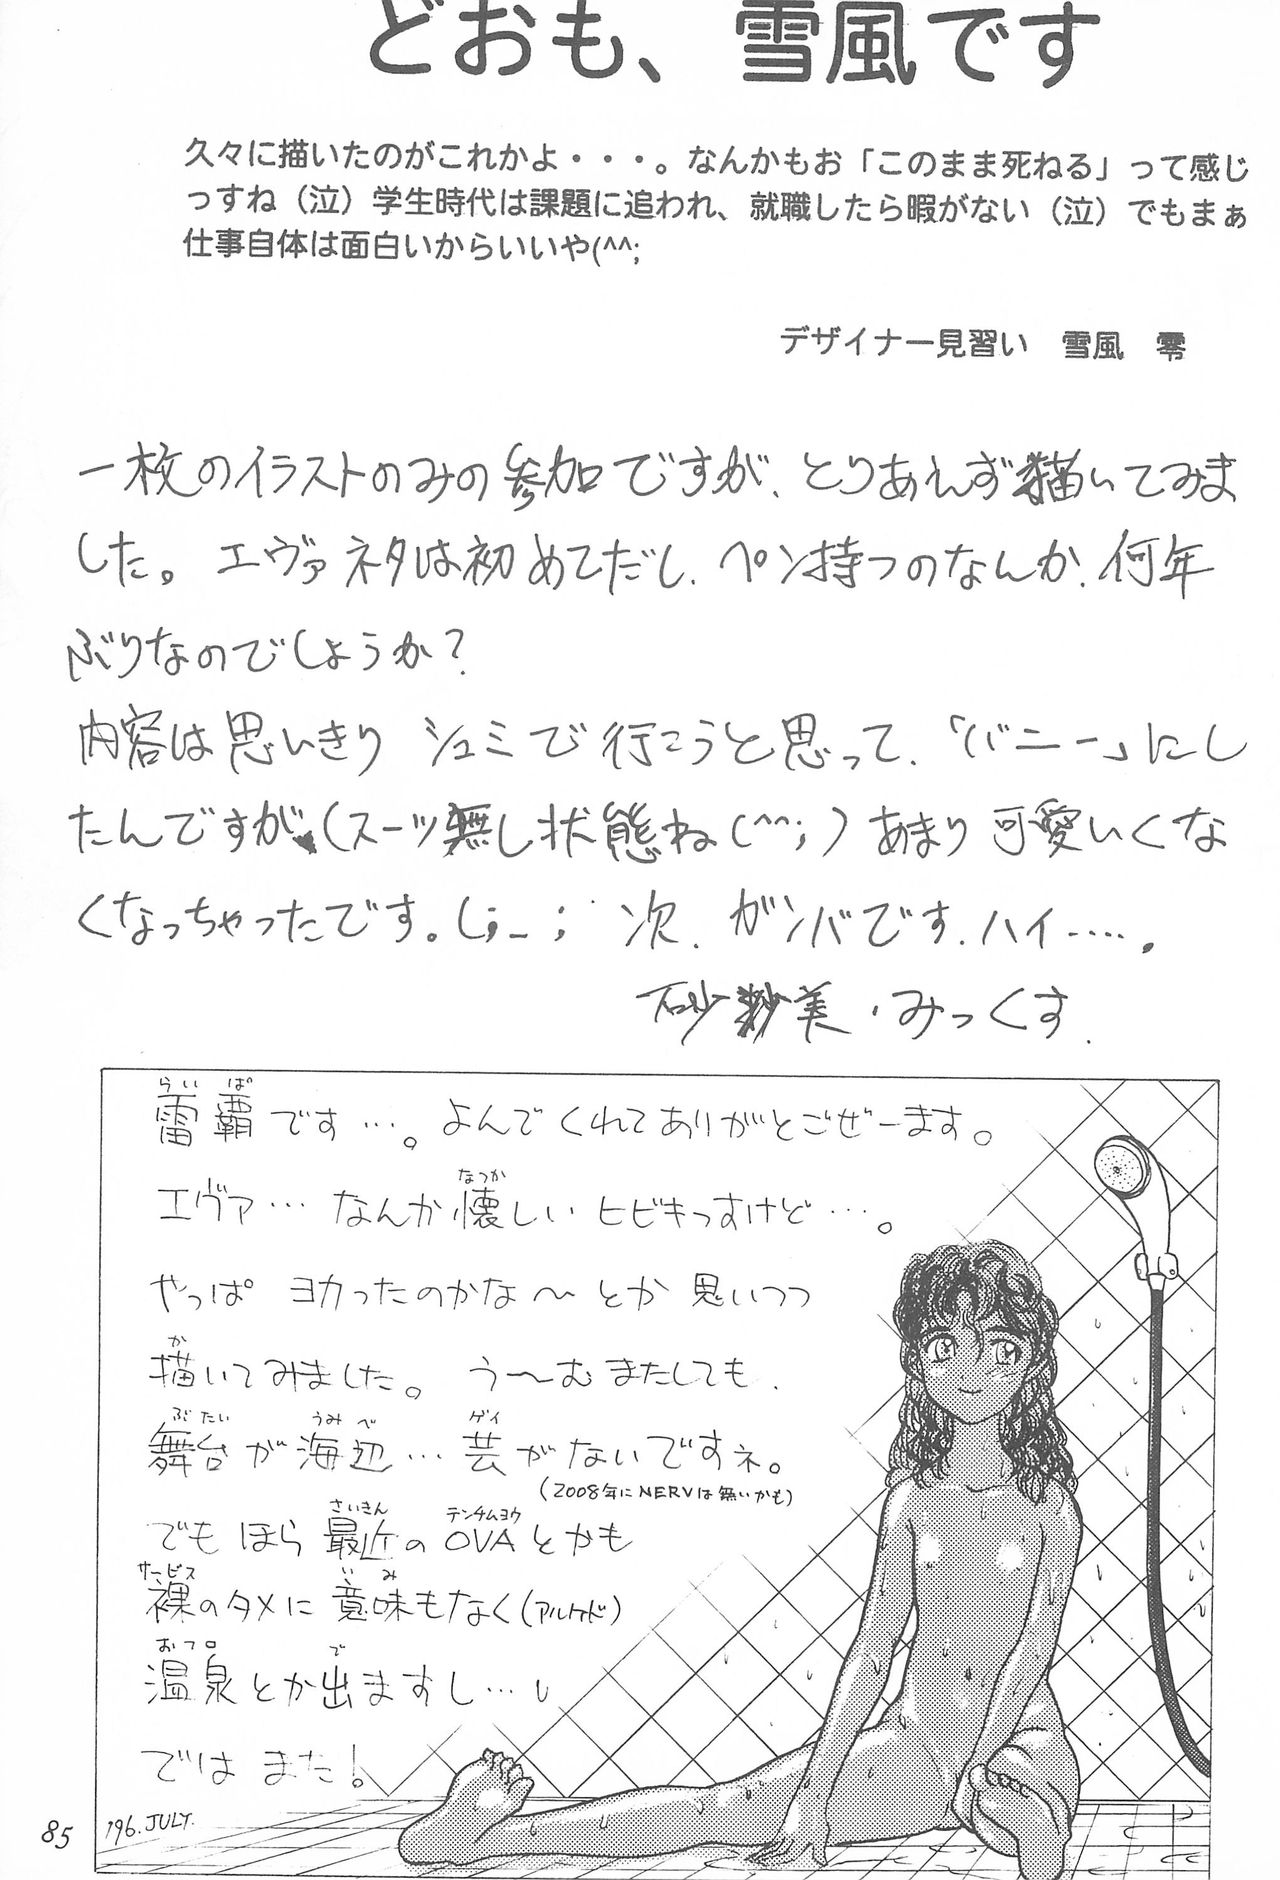 どおも、雪風です
久々に描いたのがこれかよ・・・。なんかもお「このまま死ねる」って感じ
っすね（泣）学生時代は課題に追われ、就職したら暇がない（泣）でもまぁ
仕事自体は面白いからいいや(^^;
デザイナー見習い　雪風　零
一枚のイラストのみの参加ですが、とりあえず描いてみま
した。エヴァネタは初めてだし、ペン持つのなんか、何年
ぶりなのでしょうか？
内容は思いきりシュミで行こうと思って、「バニー」にし
たんですが（スーツ無し状態ね(^^;）あまり可愛いくな
くなっちゃったです。(;_; 次、ガンバです、ハイ……。
砂紗美・みっくす
らいば
雷覇です…。よんでくれてありがとごぜーます。
なつか
エヴァ…なんか懐しいヒビキっすけど…。
やっぱ ヨカったのかな〜とか思いつつ
か
描いてみました。う〜むまたしても、
ぶたい うみべ ゲイ
舞台が海辺…芸がないですネ。
(2008年にNERVは無いかも)
さいきん テンチムヨウ
でもほら最近のOVAとかも
サービス いみ
裸のタメに意味もなく(アルケド)
おフロ で
温泉とか出ますし…
ではまた！
'96.JULY.
85